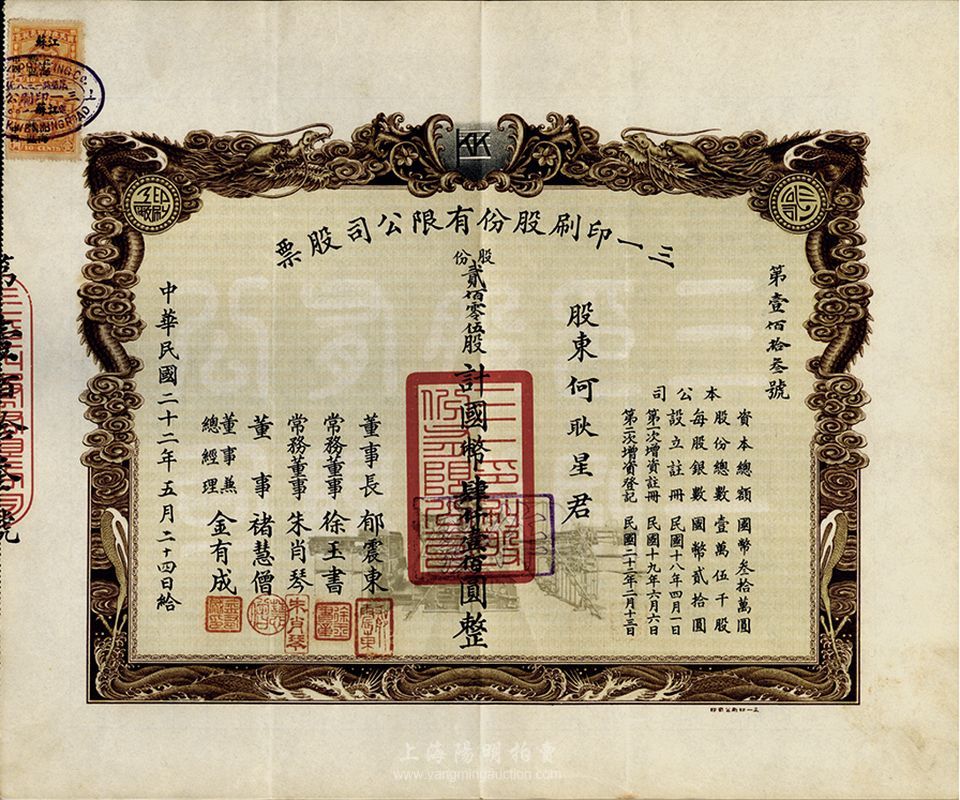 三一印刷股份有限公司股票
第壹佰拾叁號
本公司
資本總額國幣叁拾萬圓
股份總數壹萬伍千股
每股銀數國幣貳拾圓
設立註冊民國十八年四月一日
第一次增資註冊民國十九年六月六日
第二次增資登記民國二十二年二月十三日
股東何耿星君
股份貳佰零伍股計國幣肆仟壹佰圓整
董事長郁震東
常務董事徐玉書
常務董事朱肖琴
董事褚慧僧
董事兼總經理金有成
中華民國二十二年五月二十四日給
朱肖琴
三一印刷公司印
KK
印刷
江蘇
江蘇
10 CENTS
上海陽明拍賣
www.yangmingauction.com